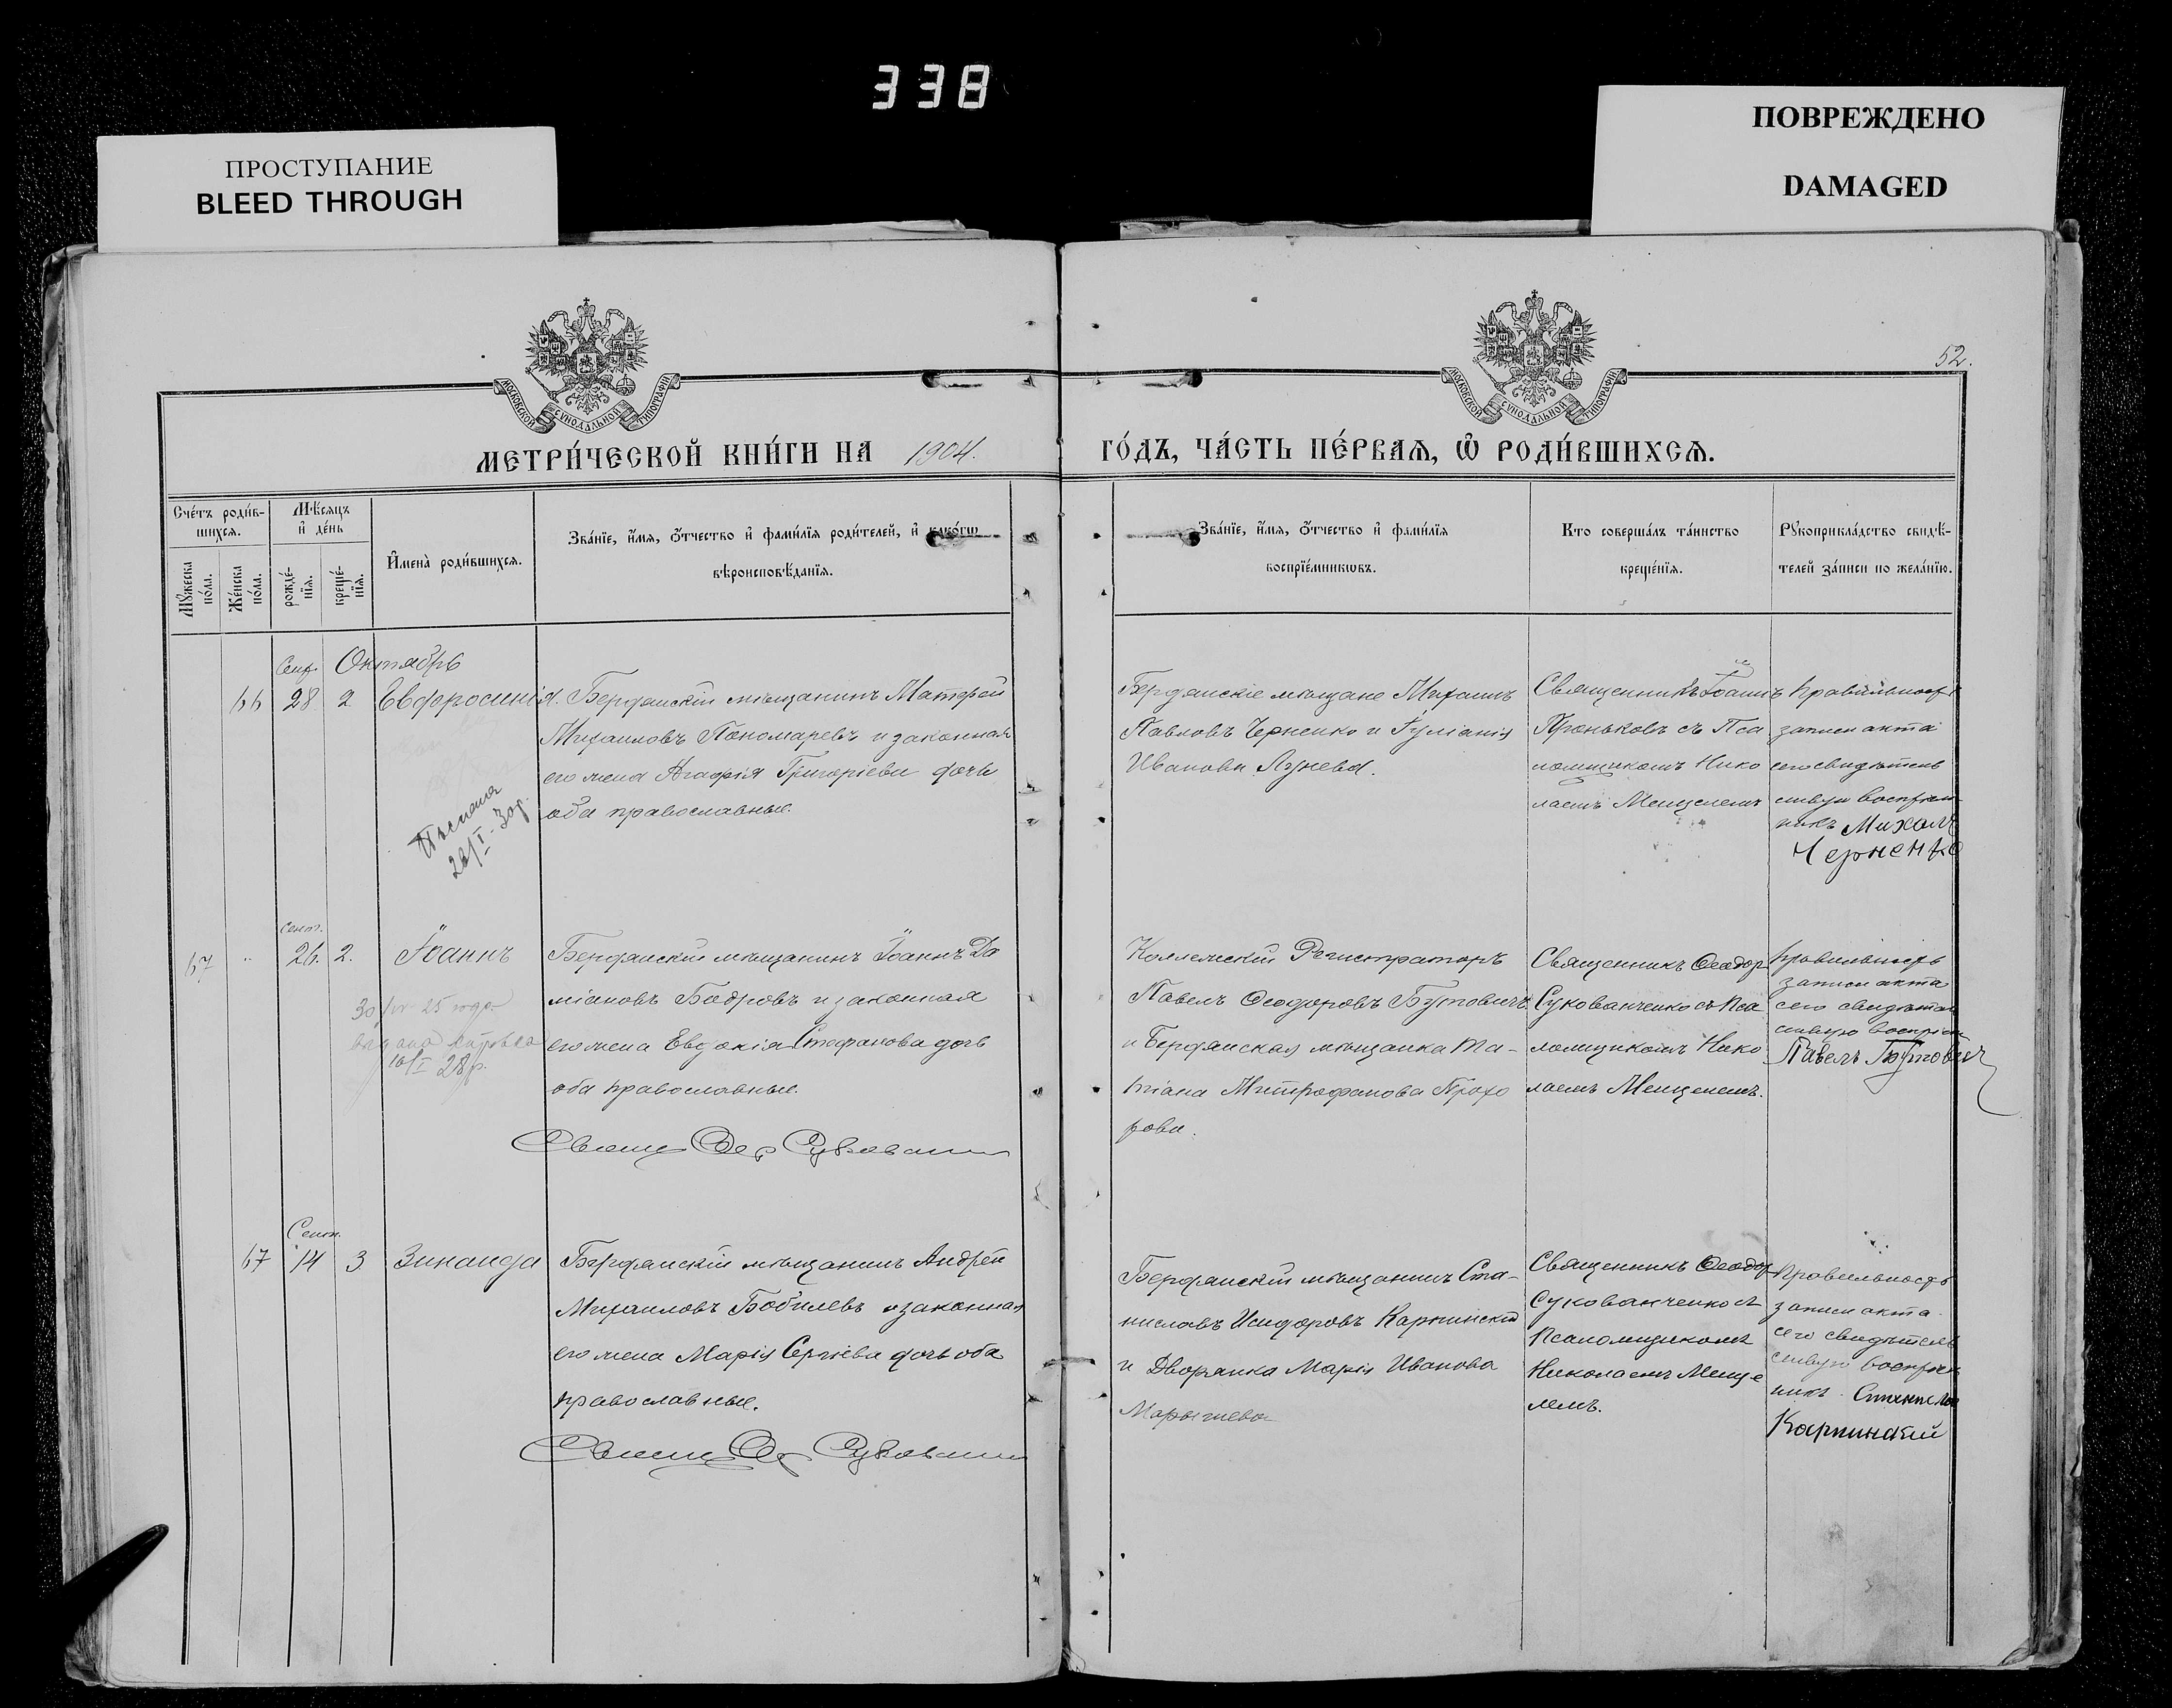 338
ПРОСТУПАНИЕ
BLEED THROUGH
ПОВРЕЖДЕНО
DAMAGED
52.
МОСКОВСКОЙ СѴНОДАЛЬНОЙ ТИПОГРАФІИ
МОСКОВСКОЙ СѴНОДАЛЬНОЙ ТИПОГРАФІИ
МЕТРИ́ЧЕСКОЙ КНИ́ГИ НА 1904. ГО́ДЪ, ЧА́СТЬ ПЕ́РВАѦ, Ѡ҆ РОДИ́ВШИХСѦ.
Сче́тъ роди́в-
шихсѧ.
Мꙋжеска по́ла.
Же́нска по́ла.
Мѣ́сѧцъ
и҆ де́нь
рожде́-
нїѧ.
креще́-
нїѧ.
И҆мена̀ роди́вшихсѧ.
Зва́нїе, и҆́мѧ, ѻ҆́тчество и҆ фами́лїѧ роди́телей, и҆ како́гѡ
вѣроисповѣ́данїѧ.
Зва́нїе, и҆́мѧ, ѻ҆́тчество и҆ фами́лїѧ
воспрїе́мникѡвъ.
Кто соверша́лъ та́инство
креще́нїѧ.
Рꙋкоприкла́дство свидѣ́-
телей за́писи по жела́нїю.
Сент. Октябрь
66 28 2 Евфросинія.
Бердянскій мѣщанинъ Матфей
Михаиловъ Пономаревъ и законная
его жена Агафія Григоріева дочь
оба православные.
28/I-30г.
Бердянскіе мѣщане Михаилъ
Павловъ Черненко и Іуліанія
Иванова Лунева.
Священникъ Іоаннъ
съ Пса
ломщикомъ Нико
лаемъ Мещенемъ
Правильность
записи акта
сего свидѣтель
ствую воспріем
никъ Михаилъ
Черненко
Сент.
67 " 26. 2. Іоаннъ
30/IV 25 года
10/I 28г.
Бердянскій мѣщанинъ Іоаннъ Да
міановъ Бодровъ и законная
его жена Евдокія Стефанова дочь
оба православные.
Коллежскій Регистраторъ
Павелъ Ѳеодоровъ Бутовичъ
и Бердянская мѣщанка Та-
тіана Митрофанова Прохо
рова.
Священникъ Ѳеодоръ
Сукованченко съ Пса
ломщикомъ Нико
лаемъ Мещенемъ.
Правильность
записи акта
сего свидѣтель
ствую воспріем
Павелъ Бутовичъ
Сент.
67 14 3 Зинаида
Бердянскій мѣщанинъ Андрей
Михаиловъ Бобылевъ и законная
его жена Марія Сергіева дочь оба
православные.
Бердянскій мѣщанинъ Ста-
ниславъ Исидоровъ Карпинскій
и Дворянка Марія Иванова
Священникъ Ѳеодоръ
Сукованченко съ
Псаломщикомъ
Николаемъ Меще
немъ.
Правильность
записи акта
сего свидѣтель
ствую воспріем
никъ Станиславъ
Карпинскій